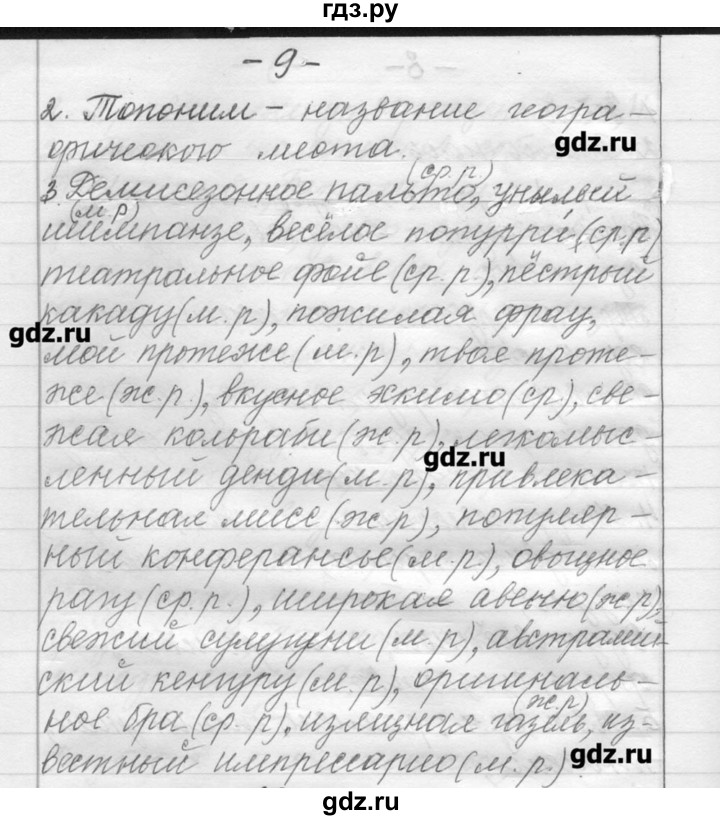 гдз.ру
- 9 -
2. Топоним – название геогра-
фического места.
gdz.ru
(ср. р.)
3. Демисезонное пальто, унылый
(м. р)
шимпанзе, весёлое попурри (ср. р)
театральное фойе (ср. р.), пёстрый
какаду (м. р), пожилая фрау,
gdz.ru
мой протеже (м. р), твоя проте-
же (ж. р.), вкусное эскимо (ср), све-
жая кольраби (ж. р), легкомыс-
gdz.ru
ленный денди (м. р), привлека-
тельная мисс (ж. р), популяр-
ный конферансье (м. р), овощное
рагу (ср. р.), широкая авеню (ж. р),
свежий сулугуни (м. р), австралий-
ский кенгуру (м. р), оригиналь-
(ж. р)
ное бра (ср. р), изящная газель, из-
вестный импрессарио (м. р.)
gdz.ru
gdz.ru